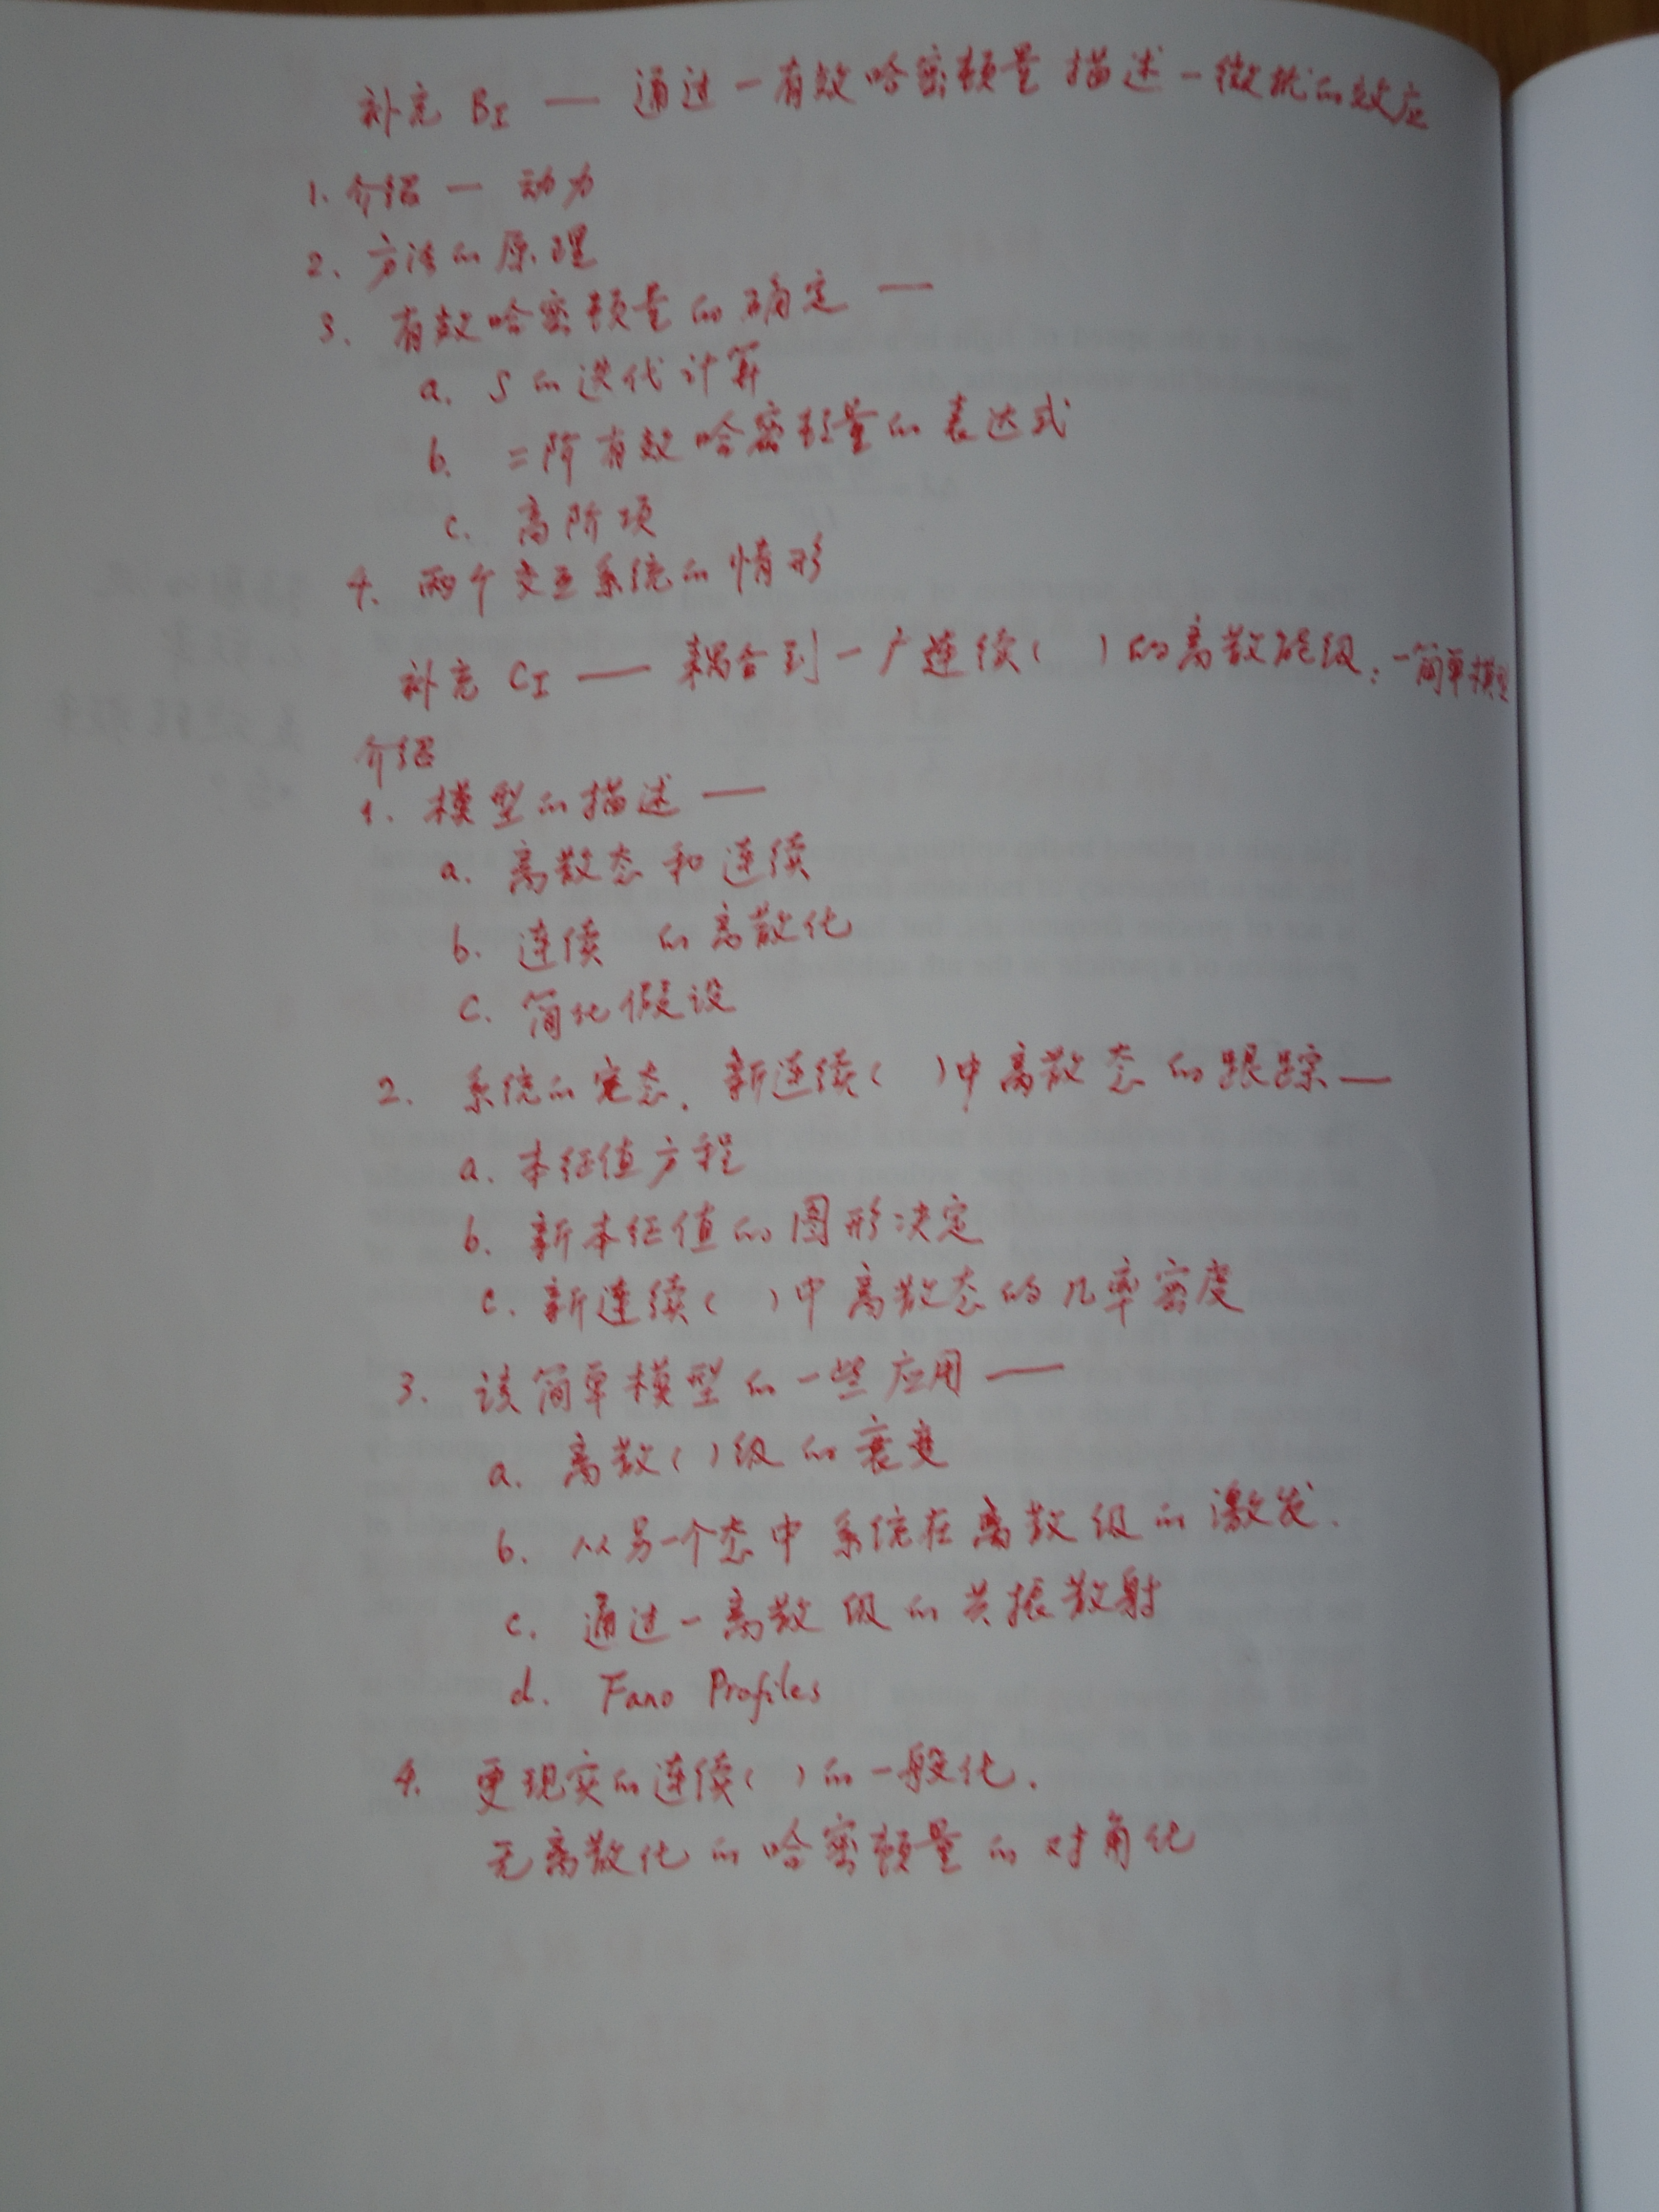 补充 BI — 通过一有效哈密顿量描述一微扰的效应
1. 介绍 — 动力
2. 方法的原理
3. 有效哈密顿量的确定 —
a. S的迭代计算
b. 二阶有效哈密顿量的表达式
c. 高阶项
4. 两个交互系统的情形
补充 CI — 耦合到一广连续( )的离散能级:一简单模型
介绍
1. 模型的描述 —
a. 离散态和连续
b. 连续 的离散化
c. 简化假设
2. 系统的定态. 新连续( )中离散态的跟踪 —
a. 本征值方程
b. 新本征值的图形决定
c. 新连续( )中离散态的几率密度
3. 该简单模型的一些应用 —
a. 离散( )级的衰变
b. 从另一个态中系统在离散级的激发.
c. 通过一离散级的共振散射
d. Fano Profiles
4. 更现实的连续( )的一般化.
无离散化的哈密顿量的对角化